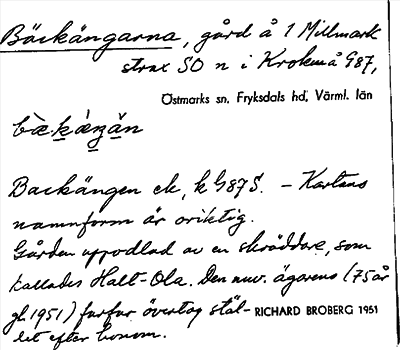 Bäckängarna, gård å 1 Millmark
strax SO n i Krokmå G87,
Östmarks sn, Fryksdals hd, Värml. län
Backängen ek, k G87S. – Kartans
namnform är oriktig.
Gården uppodlad av en skräddare, som
kallades Halt-Ola. Den nuv. ägarens (75 år
gl. 1951) farfar övertog stäl-
RICHARD BROBERG 1951
let efter honom.